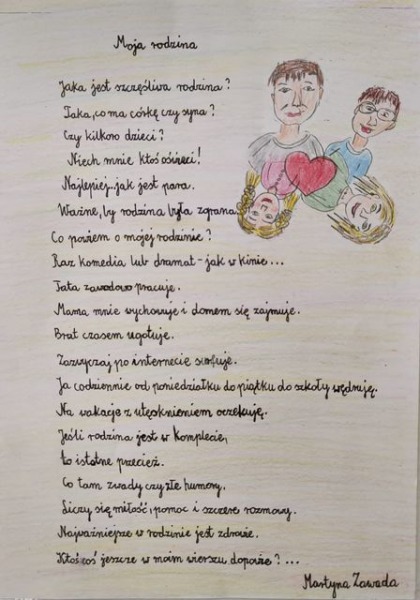 Moja rodzina
Jaka jest szczęśliwa rodzina?
Taka, co ma córkę czy syna?
Czy kilkoro dzieci?
Niech mnie ktoś oświeci!
Najlepiej jak jest para.
Ważne, by rodzina była zgrana.
Co powiem o mojej rodzinie?
Raz komedia lub dramat - jak w kinie...
Tata zawodowo pracuje.
Mama mnie wychowuje i domem się zajmuje.
Brat czasem ugotuje.
Zazwyczaj po internecie surfuje.
Ja codziennie od poniedziałku do piątku do szkoły wędruję.
Na wakacje z utęsknieniem oczekuję.
Jeśli rodzina jest w komplecie,
to istotne przecież.
Co tam zwady czy złe humory.
Liczy się miłość, pomoc i szczere rozmowy.
Najważniejsze w rodzinie jest zdrowie.
Ktoś coś jeszcze w moim wierszu dopowie?...
Martyna Zawada